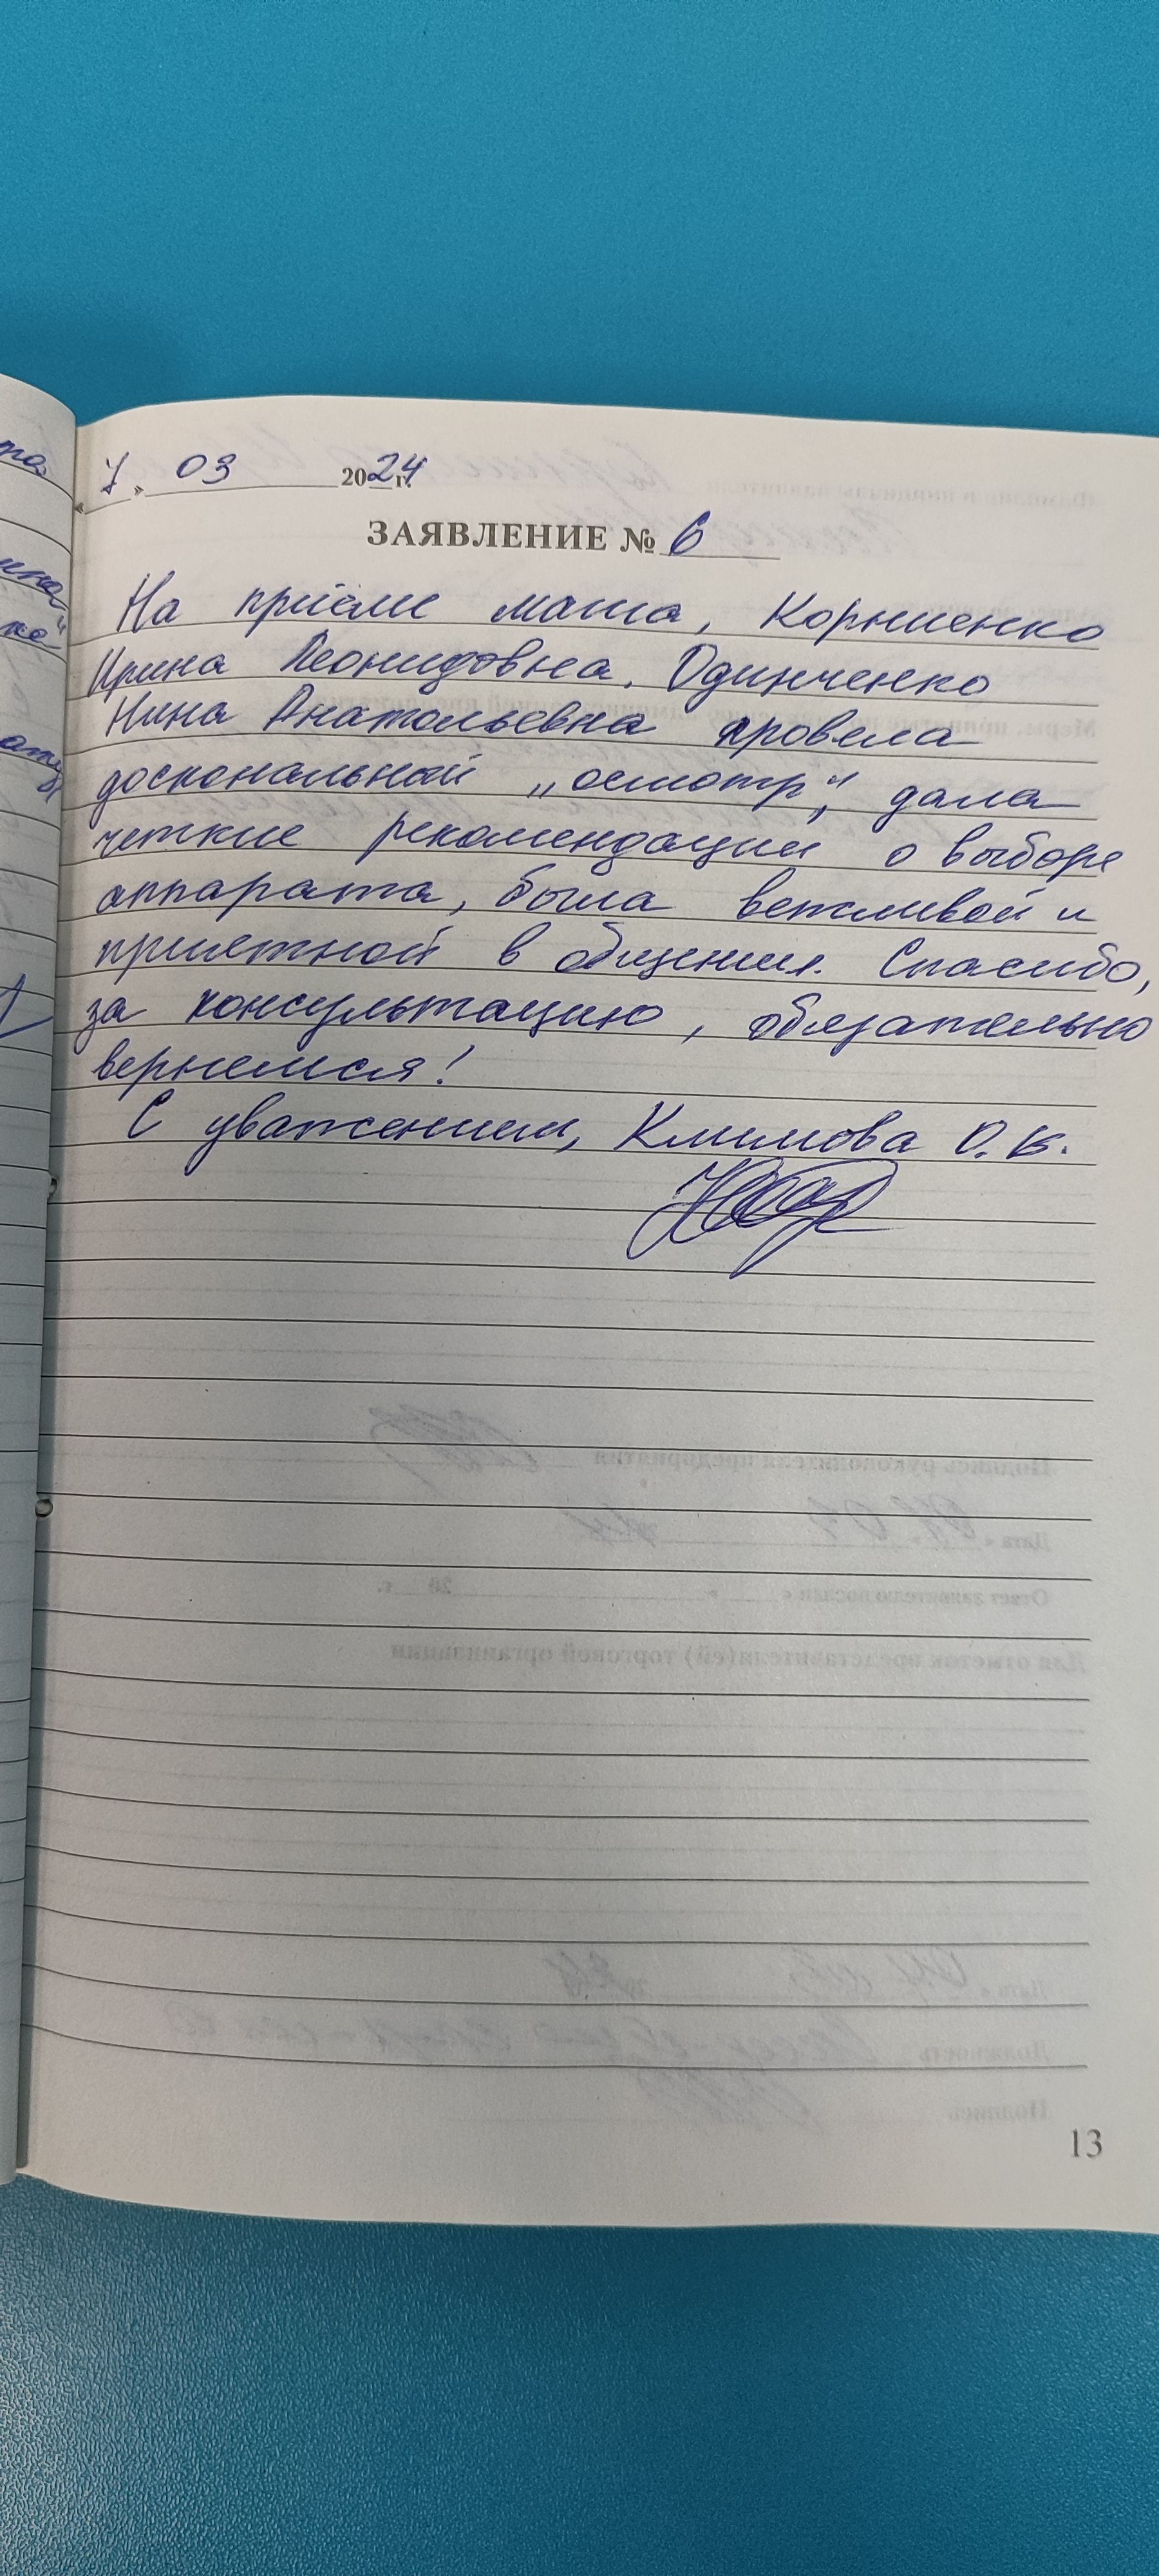 « 7 » 03 2024 г.
ЗАЯВЛЕНИЕ № 6
На приёме мама, Корниенко
Ирина Леонидовна. Одинченко
Нина Анатольевна провела
доскональный „осмотр“, дала
четкие рекомендации о выборе
аппарата, была вежливой и
приятной в общении. Спасибо,
за консультацию, обязательно
вернемся!
С уважением, Климова О. К.
13